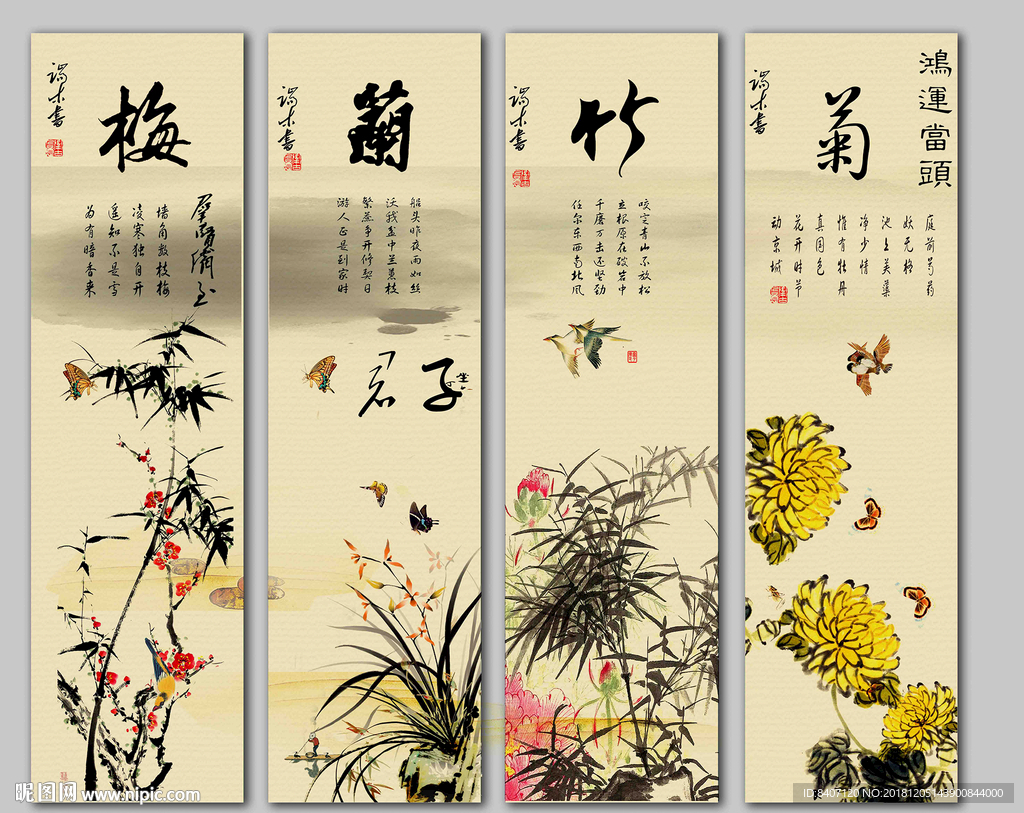 梅
墙角数枝梅
凌寒独自开
遥知不是雪
为有暗香来
蘭
船头昨夜雨如丝
沃我盆中兰蕙枝
繁蕊争开修契日
游人正是到家时
君子
竹
咬定青山不放松
立根原在破岩中
千磨万击还坚劲
任尔东西南北风
鴻運當頭
菊
庭前芍药
妖无格
池上芙蕖
净少情
惟有牡丹
真国色
花开时节
动京城
昵图网 www.nipic.com
ID:8407120 NO:20181205143900844000